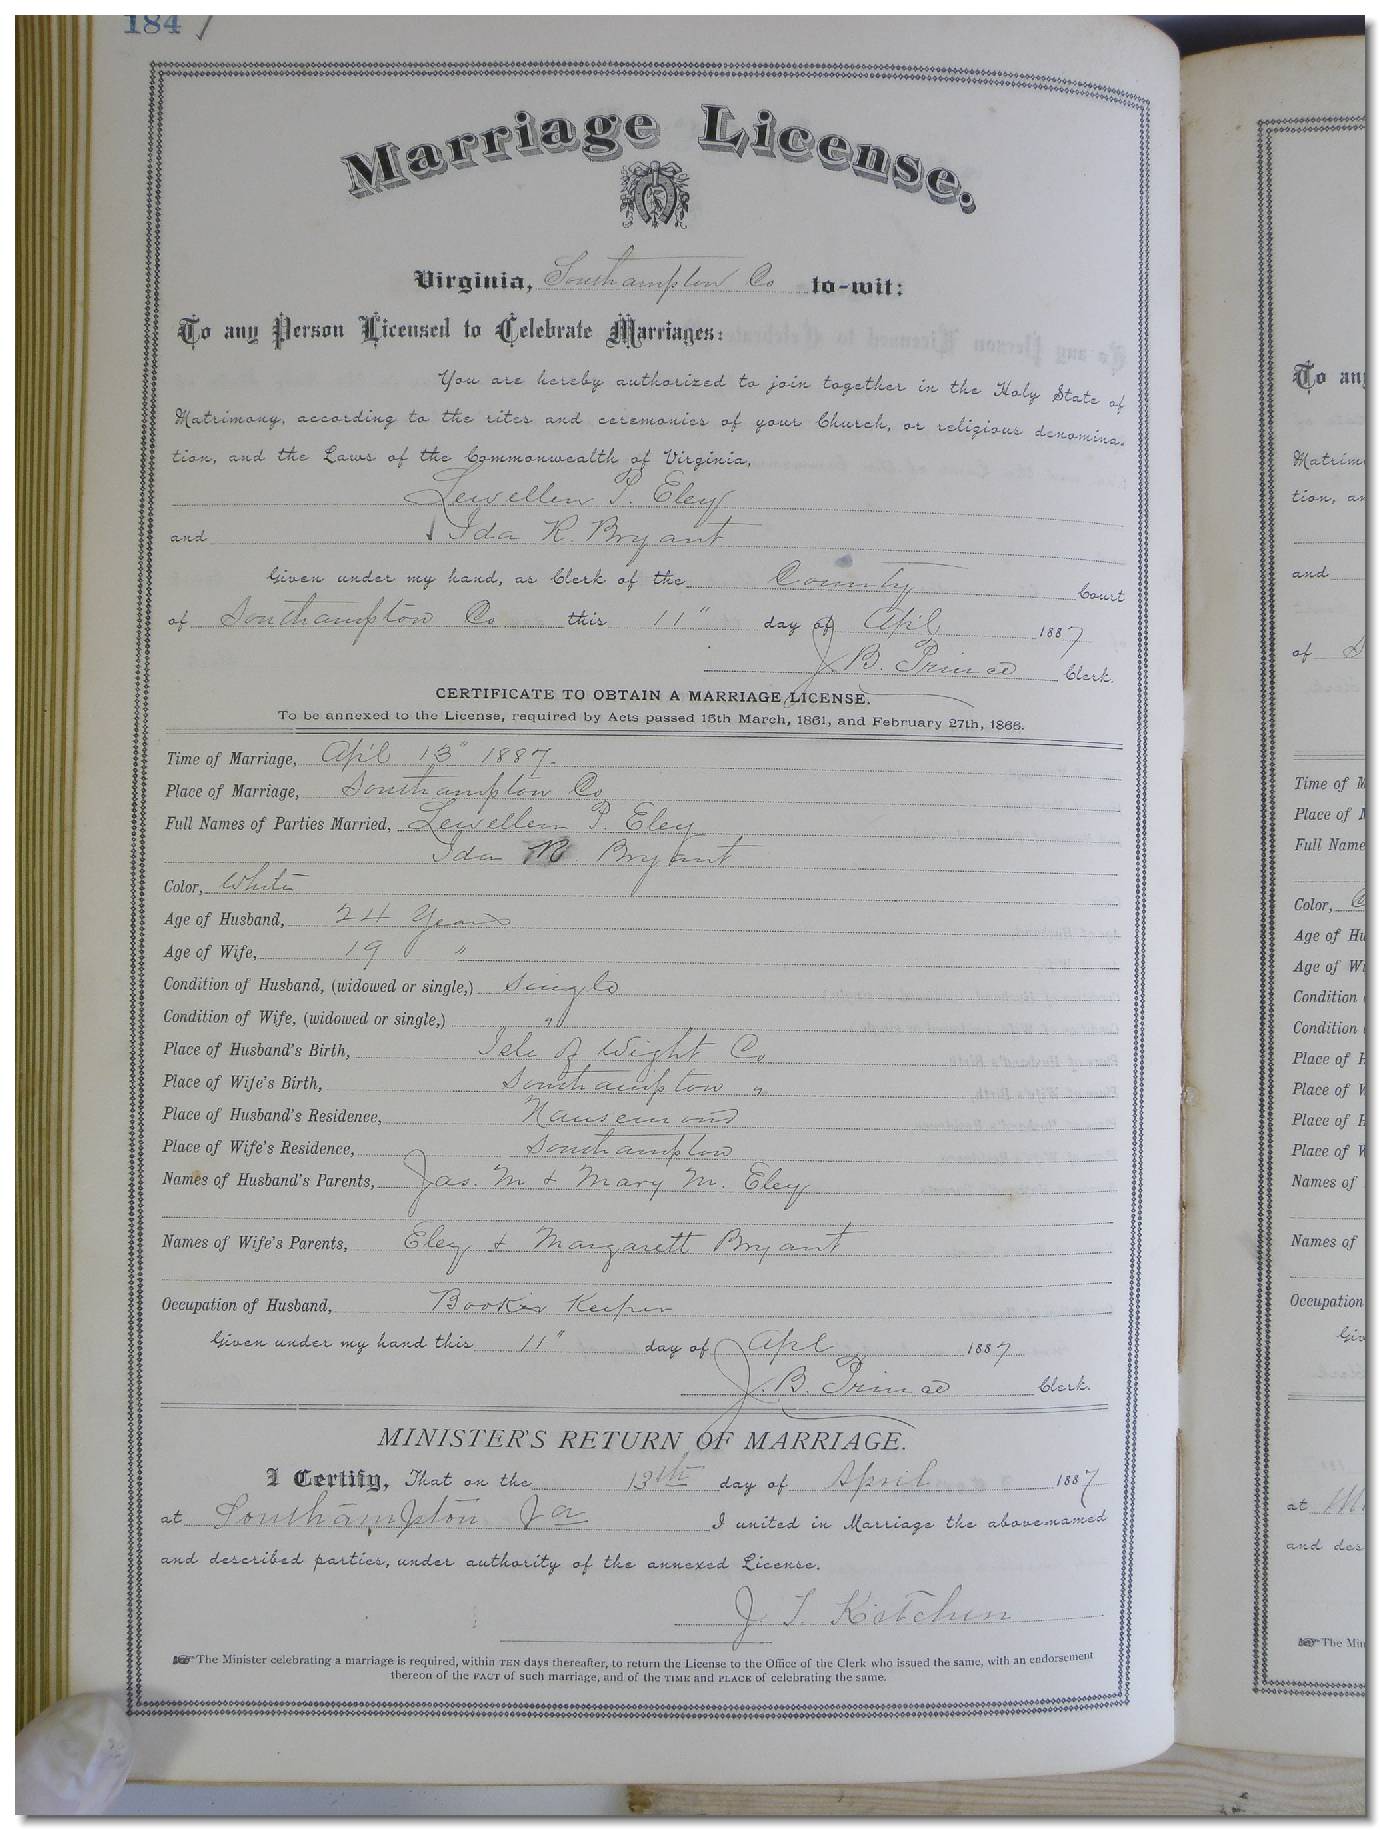 184
Marriage License.
Virginia, Southampton Co to-wit:
To any Person Licensed to Celebrate Marriages:
You are hereby authorized to join together in the Holy State of
Matrimony, according to the rites and ceremonies of your Church, or religious denomina-
tion, and the Laws of the Commonwealth of Virginia,
Lewellen P. Eley
and Ida R. Bryant
Given under my hand, as Clerk of the County Court
of Southampton Co this 11" day of Apl 1887
J. B. Prince Clerk.
CERTIFICATE TO OBTAIN A MARRIAGE LICENSE.
To be annexed to the License, required by Acts passed 15th March, 1861, and February 27th, 1866.
Time of Marriage, Apl 13" 1887.
Place of Marriage, Southampton Co
Full Names of Parties Married, Lewellen P. Eley
Ida R Bryant
Color, White
Age of Husband, 24 Years
Age of Wife, 19 "
Condition of Husband, (widowed or single,) Single
Condition of Wife, (widowed or single,) "
Place of Husband's Birth, Isle of Wight Co
Place of Wife's Birth, Southampton "
Place of Husband's Residence, Nansemond
Place of Wife's Residence, Southampton
Names of Husband's Parents, Jas. M & Mary M. Eley
Names of Wife's Parents, Eley & Margarett Bryant
Occupation of Husband, Keeper
Given under my hand this 11" day of Apl 1887
J. B. Prince Clerk.
MINISTER'S RETURN OF MARRIAGE.
I Certify, That on the 13th day of April 1887
at Southampton Va I united in Marriage the above-named
and described parties, under authority of the annexed License.
J. T. Kitchen
The Minister celebrating a marriage is required, within TEN days thereafter, to return the License to the Office of the Clerk who issued the same, with an endorsement
thereon of the FACT of such marriage, and of the TIME and PLACE of celebrating the same.
To any
Matrim
tion, an
and
of S
Time of M
Place of M
Full Name
Color, C
Age of Hu
Age of Wi
Condition
Condition
Place of H
Place of W
Place of H
Place of W
Names of
Names of
Occupation
Giv
at
and des
The Min